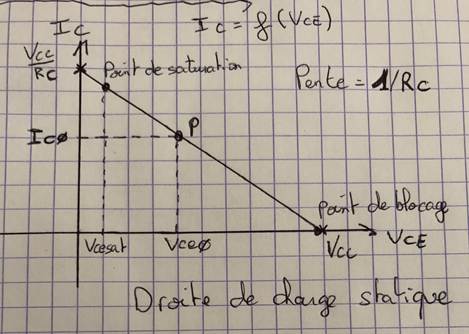 Ic
Ic = f(VCE)
Vcc
Rc
Point de saturation
Pente = 1/Rc
Icø
P
point de blocage
Vcesat
Vceø
Vcc
VCE
Droite de charge statique